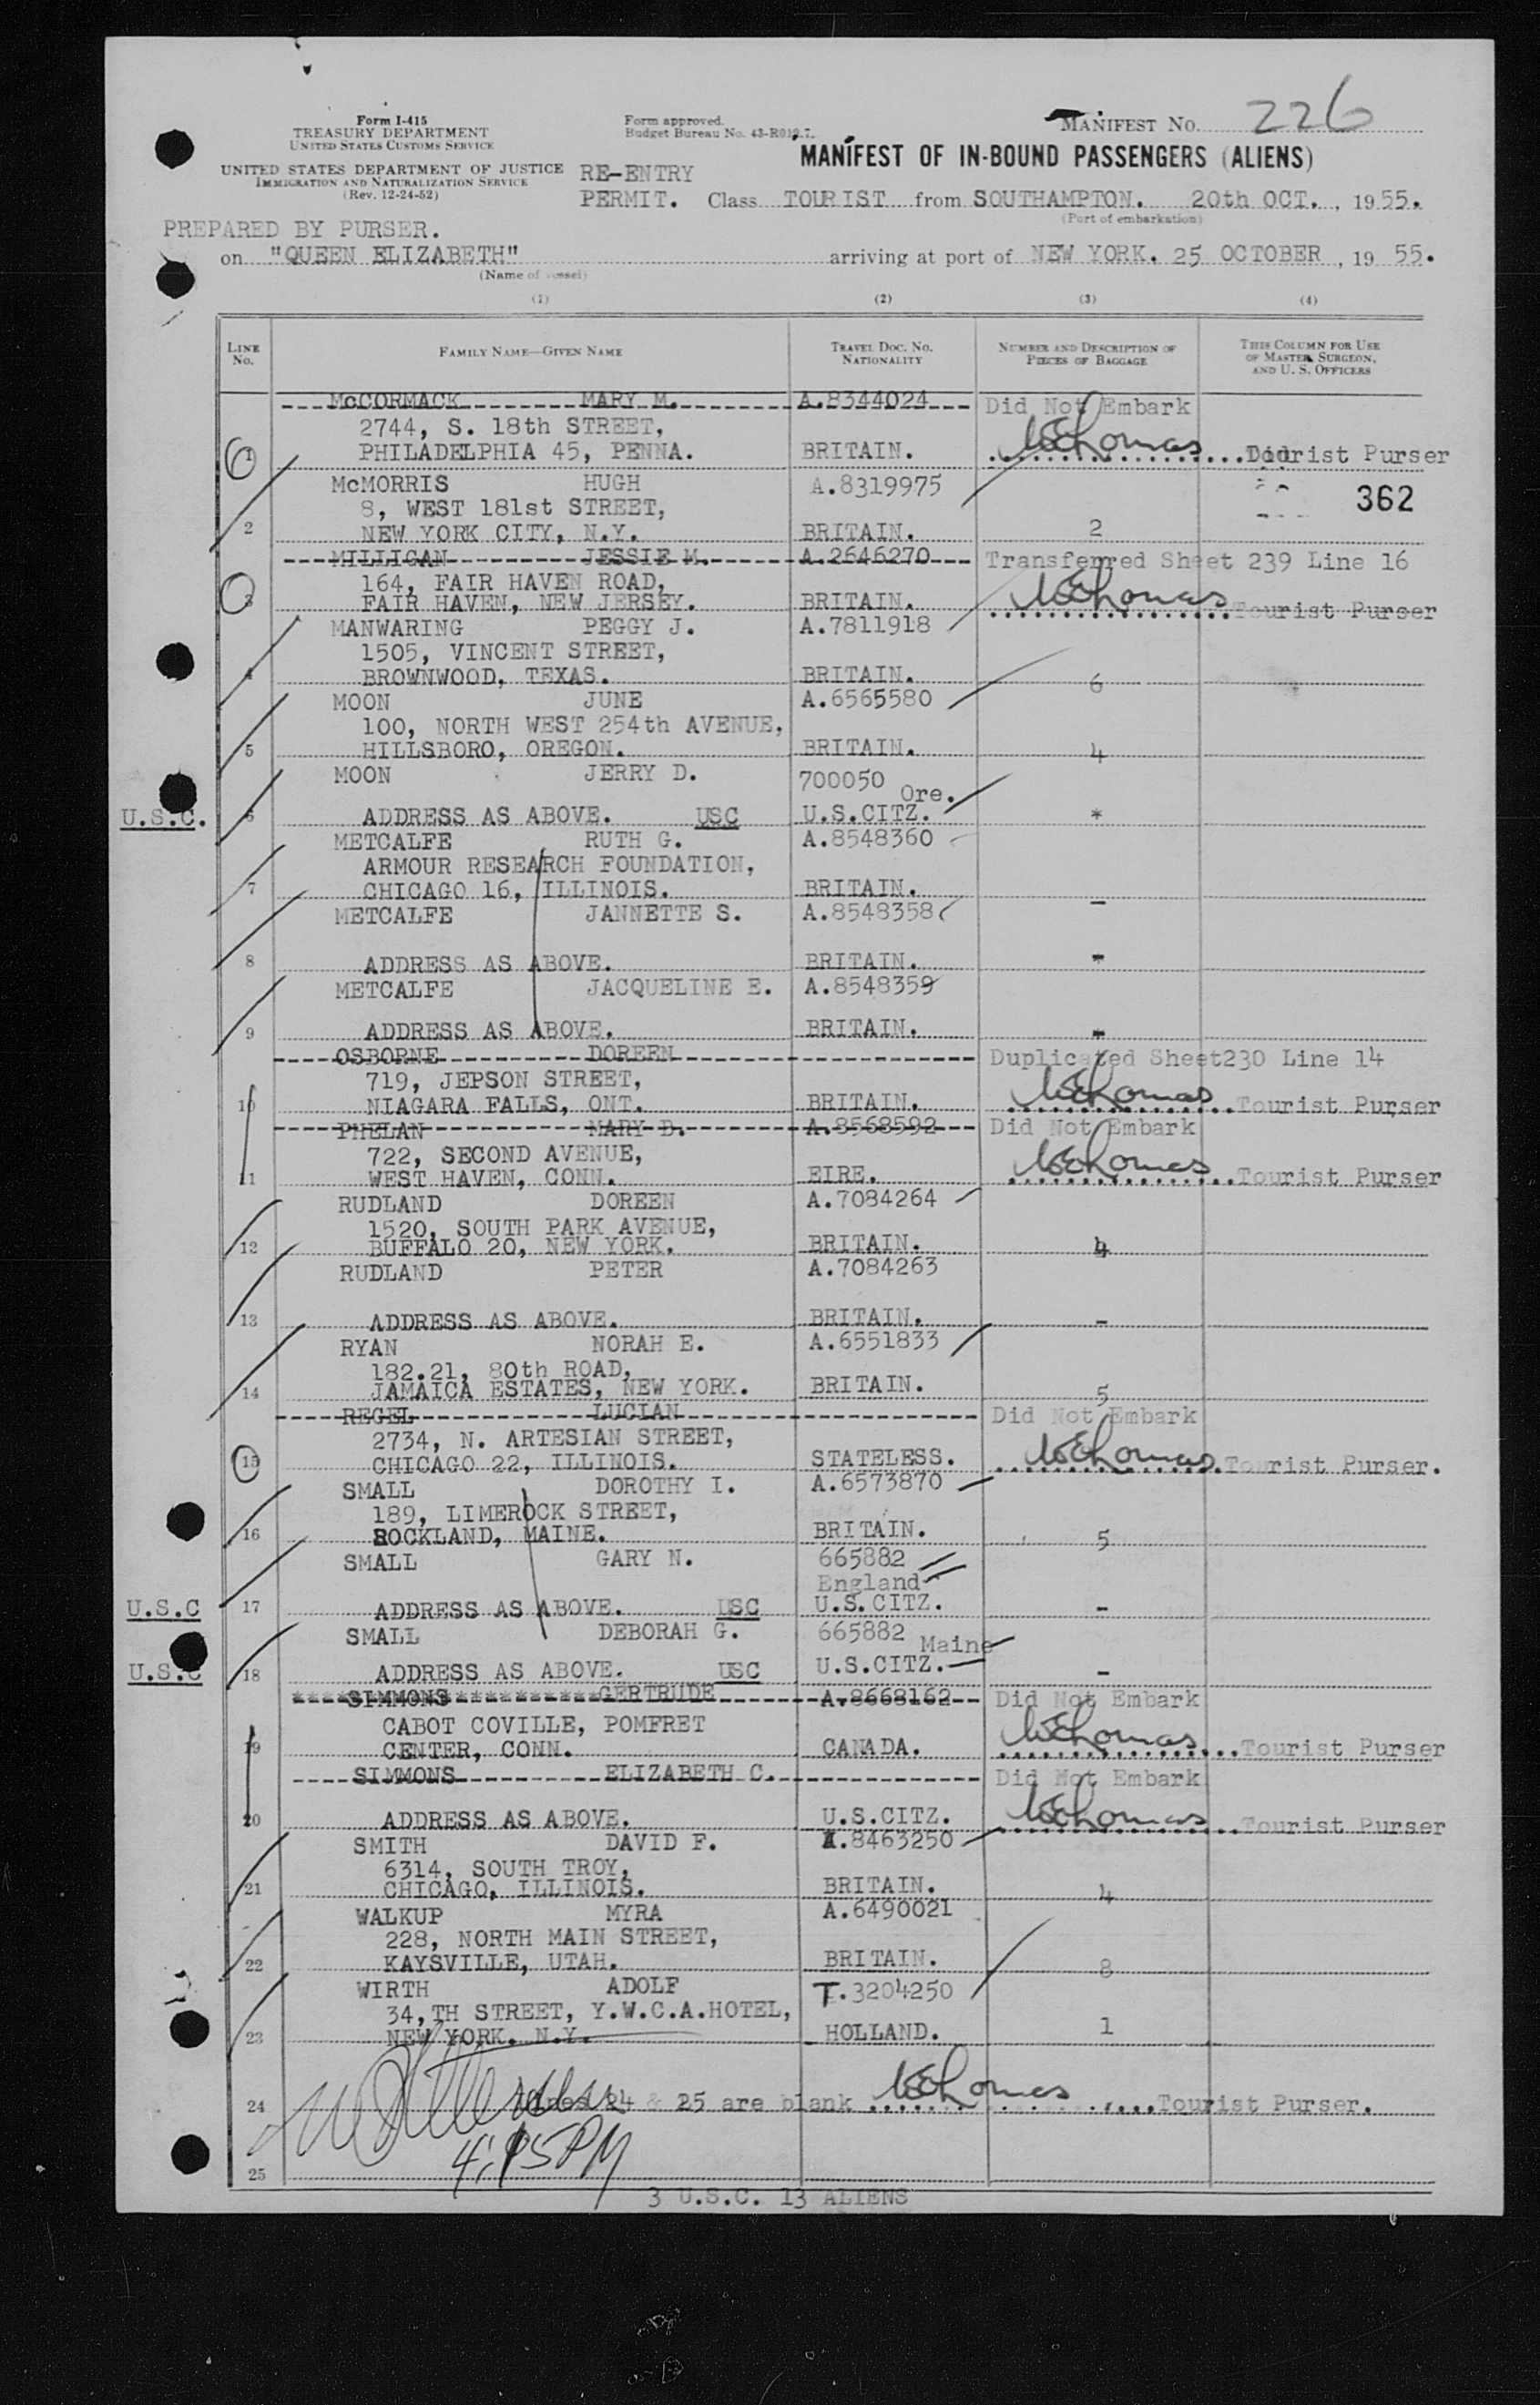 Form I-415
TREASURY DEPARTMENT
UNITED STATES CUSTOMS SERVICE
UNITED STATES DEPARTMENT OF JUSTICE
IMMIGRATION AND NATURALIZATION SERVICE
(Rev. 12-24-52)
Form approved.
Budget Bureau No. 43-R019.7.
MANIFEST No. 226
MANIFEST OF IN-BOUND PASSENGERS (ALIENS)
RE-ENTRY
PERMIT. Class TOURIST from SOUTHAMPTON. 20th OCT., 1955.
(Port of embarkation)
PREPARED BY PURSER.
on "QUEEN ELIZABETH" arriving at port of NEW YORK. 25 OCTOBER, 1955.
(Name of vessel)
(1) (2) (3) (4)
LINE No. FAMILY NAME—GIVEN NAME TRAVEL DOC. NO. NATIONALITY NUMBER AND DESCRIPTION OF PIECES OF BAGGAGE THIS COLUMN FOR USE OF MASTER, SURGEON, AND U. S. OFFICERS
McCORMACK MARY M. A.8344024 Did Not Embark
2744, S. 18th STREET,
1 PHILADELPHIA 45, PENNA. BRITAIN. WEThomas Tourist Purser
McMORRIS HUGH A.8319975
8, WEST 181st STREET, 362
2 NEW YORK CITY, N.Y. BRITAIN. 2
MILLIGAN JESSIE M. A.2646270 Transferred Sheet 239 Line 16
164, FAIR HAVEN ROAD,
3 FAIR HAVEN, NEW JERSEY. BRITAIN. WEThomas Tourist Purser
MANWARING PEGGY J. A.7811918
1505, VINCENT STREET,
4 BROWNWOOD, TEXAS. BRITAIN. 6
MOON JUNE A.6565580
100, NORTH WEST 254th AVENUE,
5 HILLSBORO, OREGON. BRITAIN. 4
MOON JERRY D. 700050 Ore.
U.S.C. 6 ADDRESS AS ABOVE. USC U.S.CITZ. *
METCALFE RUTH G. A.8548360
ARMOUR RESEARCH FOUNDATION,
7 CHICAGO 16, ILLINOIS. BRITAIN. -
METCALFE JANNETTE S. A.8548358
8 ADDRESS AS ABOVE. BRITAIN. *
METCALFE JACQUELINE E. A.8548359
9 ADDRESS AS ABOVE. BRITAIN. *
OSBORNE DOREEN Duplicated Sheet230 Line 14
719, JEPSON STREET,
10 NIAGARA FALLS, ONT. BRITAIN. WEThomas Tourist Purser
PHELAN MARY D. A.8568592 Did Not Embark
722, SECOND AVENUE,
11 WEST HAVEN, CONN. EIRE. WEThomas Tourist Purser
RUDLAND DOREEN A.7084264
1520, SOUTH PARK AVENUE,
12 BUFFALO 20, NEW YORK. BRITAIN. 4
RUDLAND PETER A.7084263
13 ADDRESS AS ABOVE. BRITAIN. -
RYAN NORAH E. A.6551833
182.21, 80th ROAD,
14 JAMAICA ESTATES, NEW YORK. BRITAIN. 5
REGEL LUCIAN Did Not Embark
2734, N. ARTESIAN STREET,
15 CHICAGO 22, ILLINOIS. STATELESS. WEThomas Tourist Purser.
SMALL DOROTHY I. A.6573870
189, LIMEROCK STREET,
16 ROCKLAND, MAINE. BRITAIN. 5
SMALL GARY N. 665882
England
U.S.C 17 ADDRESS AS ABOVE. USC U.S.CITZ. -
SMALL DEBORAH G. 665882 Maine
U.S.C 18 ADDRESS AS ABOVE. USC U.S.CITZ. -
SIMMONS GERTRUDE A.8668162 Did Not Embark
CABOT COVILLE, POMFRET
19 CENTER, CONN. CANADA. WEThomas Tourist Purser
SIMMONS ELIZABETH C. Did Not Embark
20 ADDRESS AS ABOVE. U.S.CITZ. WEThomas Tourist Purser
SMITH DAVID F. A.8463250
6314, SOUTH TROY,
21 CHICAGO, ILLINOIS. BRITAIN. 4
WALKUP MYRA A.6490021
228, NORTH MAIN STREET,
22 KAYSVILLE, UTAH. BRITAIN. 8
WIRTH ADOLF T.3204250
34,TH STREET, Y.W.C.A.HOTEL,
23 NEW YORK. N.Y. HOLLAND. 1
24 Lines 24 & 25 are blank WEThomas Tourist Purser.
4.15 PM
25
3 U.S.C. 13 ALIENS